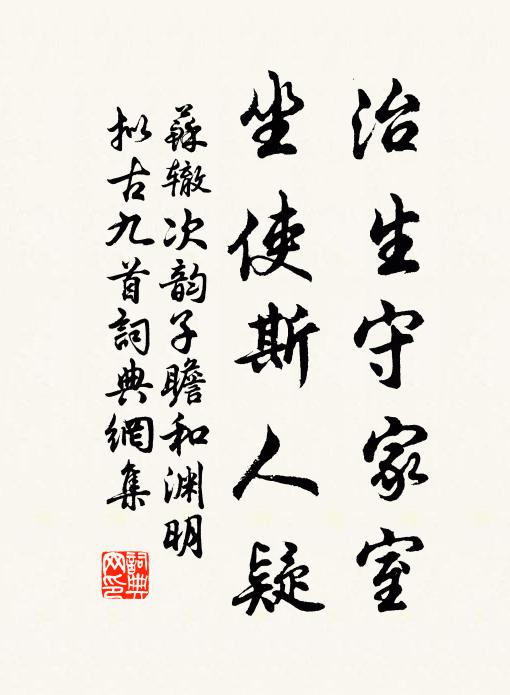 治生守家室
坐使斯人疑
蘇辙次韵子瞻和渊明
拟古九首詞典網集
詞典
网印